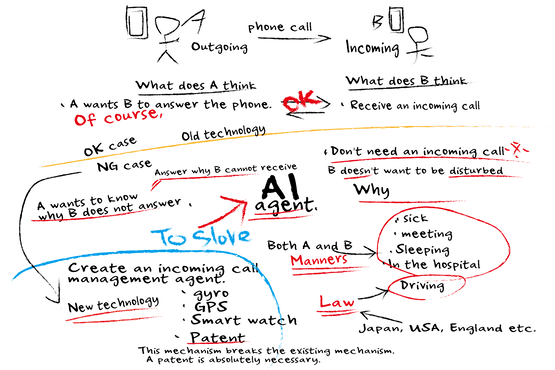 A
B
Outgoing
phone call
Incoming
What does A think
What does B think
・A wants B to answer the phone.
OK
・Receive an incoming call
Of course,
OK case
Old technology
NG case
・Don't need an incoming call
Answer why B cannot receive
B doesn't want to be disturbed
AI
agent.
Why
A wants to know
why B does not answer.
・sick
・meeting
・Sleeping
・In the hospital
To Slove
Both A and B
Manners
Driving
Create an incoming call
management agent.
New technology
・gyro
・GPS
・Smart watch
・Patent
Law
Japan, USA, England etc.
This mechanism breaks the existing mechanism.
A patent is absolutely necessary.